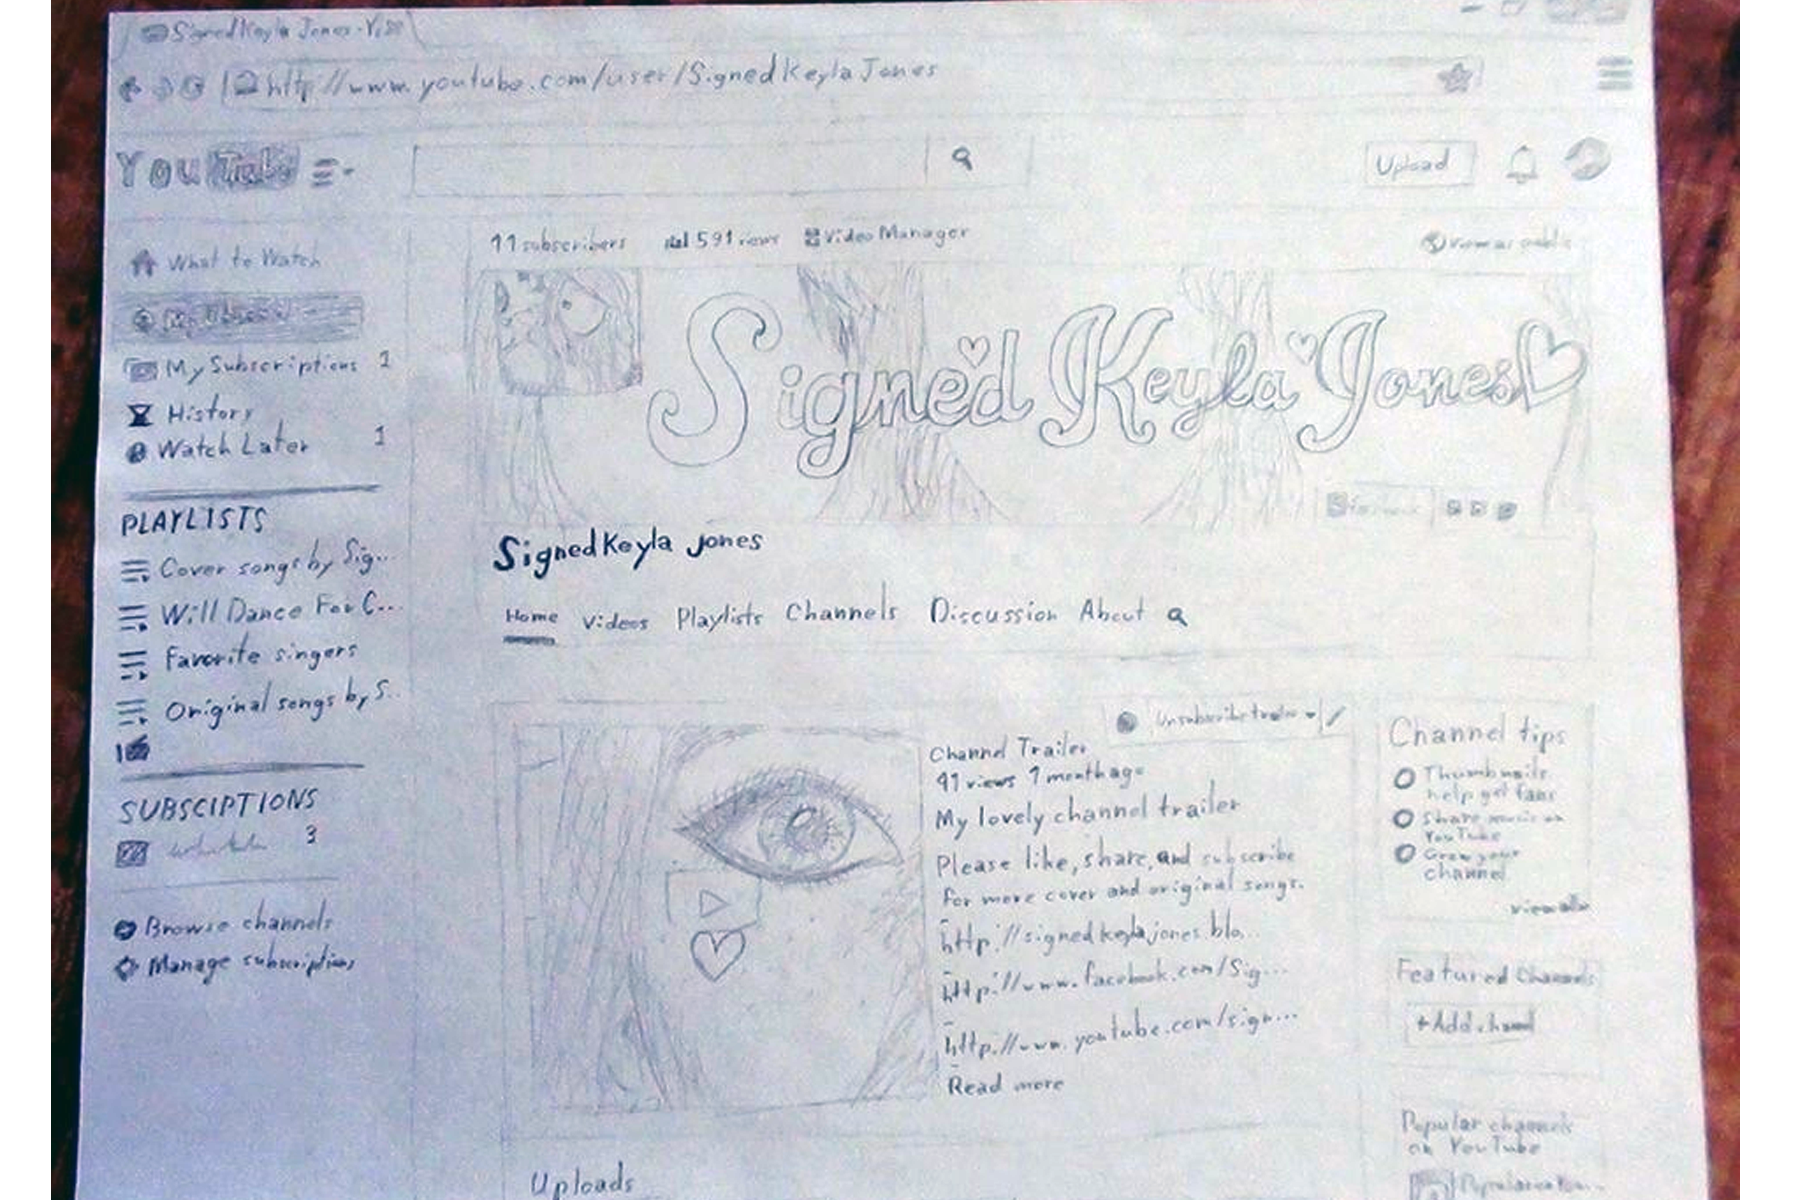 SignedKeyla Jones - Y
http://www.youtube.com/user/SignedKeylaJones
YouTube
Upload
11 subscribers 591 views Video Manager
View as public
What to Watch
My Subscriptions 1
History
Watch Later 1
Signed Keyla Jones
PLAYLISTS
Cover songs by Sig...
Will Dance For C...
Favorite singers
Original songs by S..
SUBSCIPTIONS
3
Browse channels
Manage subscriptions
SignedKeyla Jones
Home Videos Playlists Channels Discussion About
Unsubscribe trailer
Channel Trailer
41 views 1 month ago
My lovely channel trailer
Please like, share, and subscribe
for more cover and original songs.
http://signedkeylajones.blo...
http://www.facebook.com/Sig...
http://www.youtube.com/sign...
Read more
Channel tips
Thumbnails
help get fans
Share music on
YouTube
Grow your
channel
view all
Featured Channels
+Add channel
Popular channels
on YouTube
Uploads